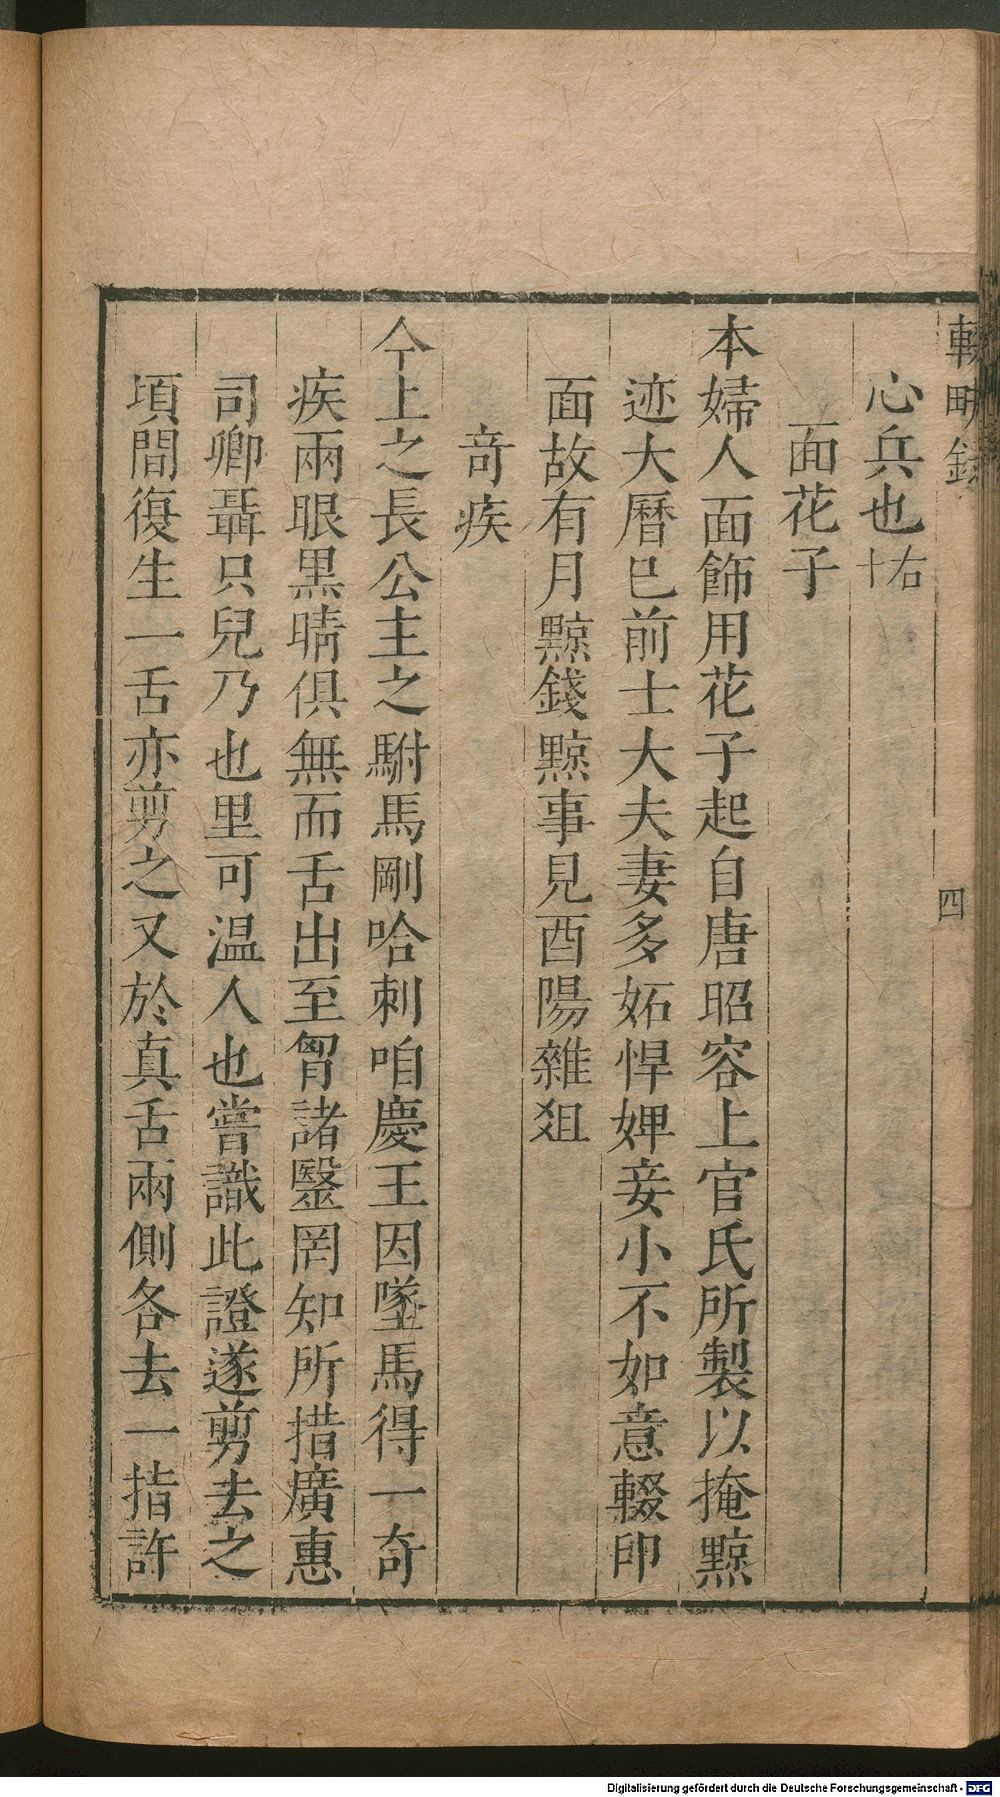 輟畊錄
四
心兵也右十
面花子
本婦人面飾用花子起自唐昭容上官氏所製以掩黥
迹大曆巳前士大夫妻多妬悍婢妾小不如意輟印
面故有月黥錢黥事見酉陽雜爼
奇疾
今上之長公主之駙馬剛哈剌咱慶王因墜馬得一奇
疾兩眼黒睛俱無而舌出至胷諸毉罔知所措廣惠
司卿聶只兒乃也里可温人也嘗識此證遂剪去之
頃間復生一舌亦剪之又於真舌兩側各去一指許
Digitalisierung gefördert durch die Deutsche Forschungsgemeinschaft - DFG